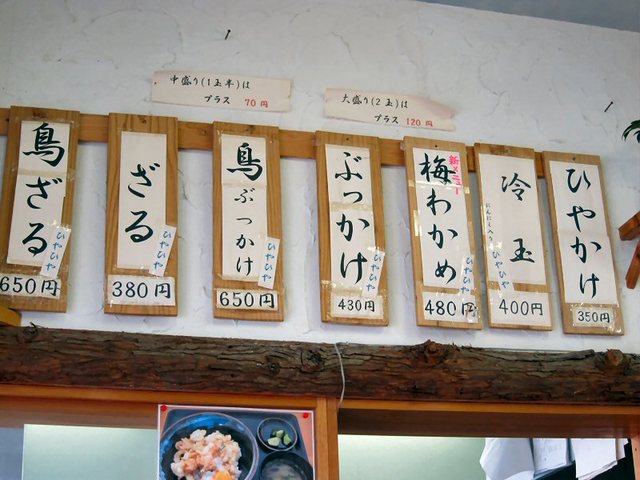 中盛り(1玉半)は
プラス 70円
大盛り(2玉)は
プラス 120円
鳥ざる
ひやひや
650円
ざる
ひやひや
380円
鳥ぶっかけ
ひやひや
650円
ぶっかけ
ひやひや
430円
新メニュー
梅わかめ
ひやひや
480円
冷玉
ひやひや
400円
ひやかけ
350円